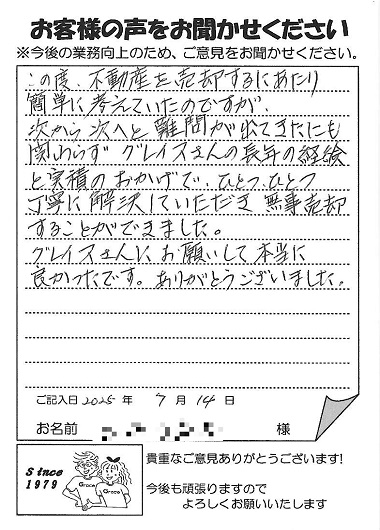 お客様の声をお聞かせください
※今後の業務向上のため、ご意見をお聞かせください。
この度、不動産を売却するにあたり
簡単に考えていたのですが、
次から次へと難問が出てきたにも
関わらず グレイスさんの長年の経験
と実積のおかげで、ひとつ、ひとつ
丁寧に解決していただき 無事売却
することができました。
グレイスさんに お願いして本当に
良かったです。ありがとうございました。
ご記入日 2025 年 7 月 14 日
お名前 様
貴重なご意見ありがとうございます!
Since
1979
Grace
Grace
今後も頑張りますので
よろしくお願いいたします